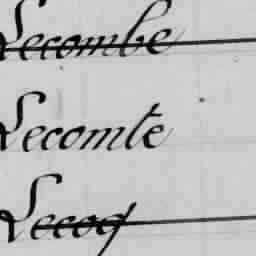 Lecombe
Lecomte
Lecoq